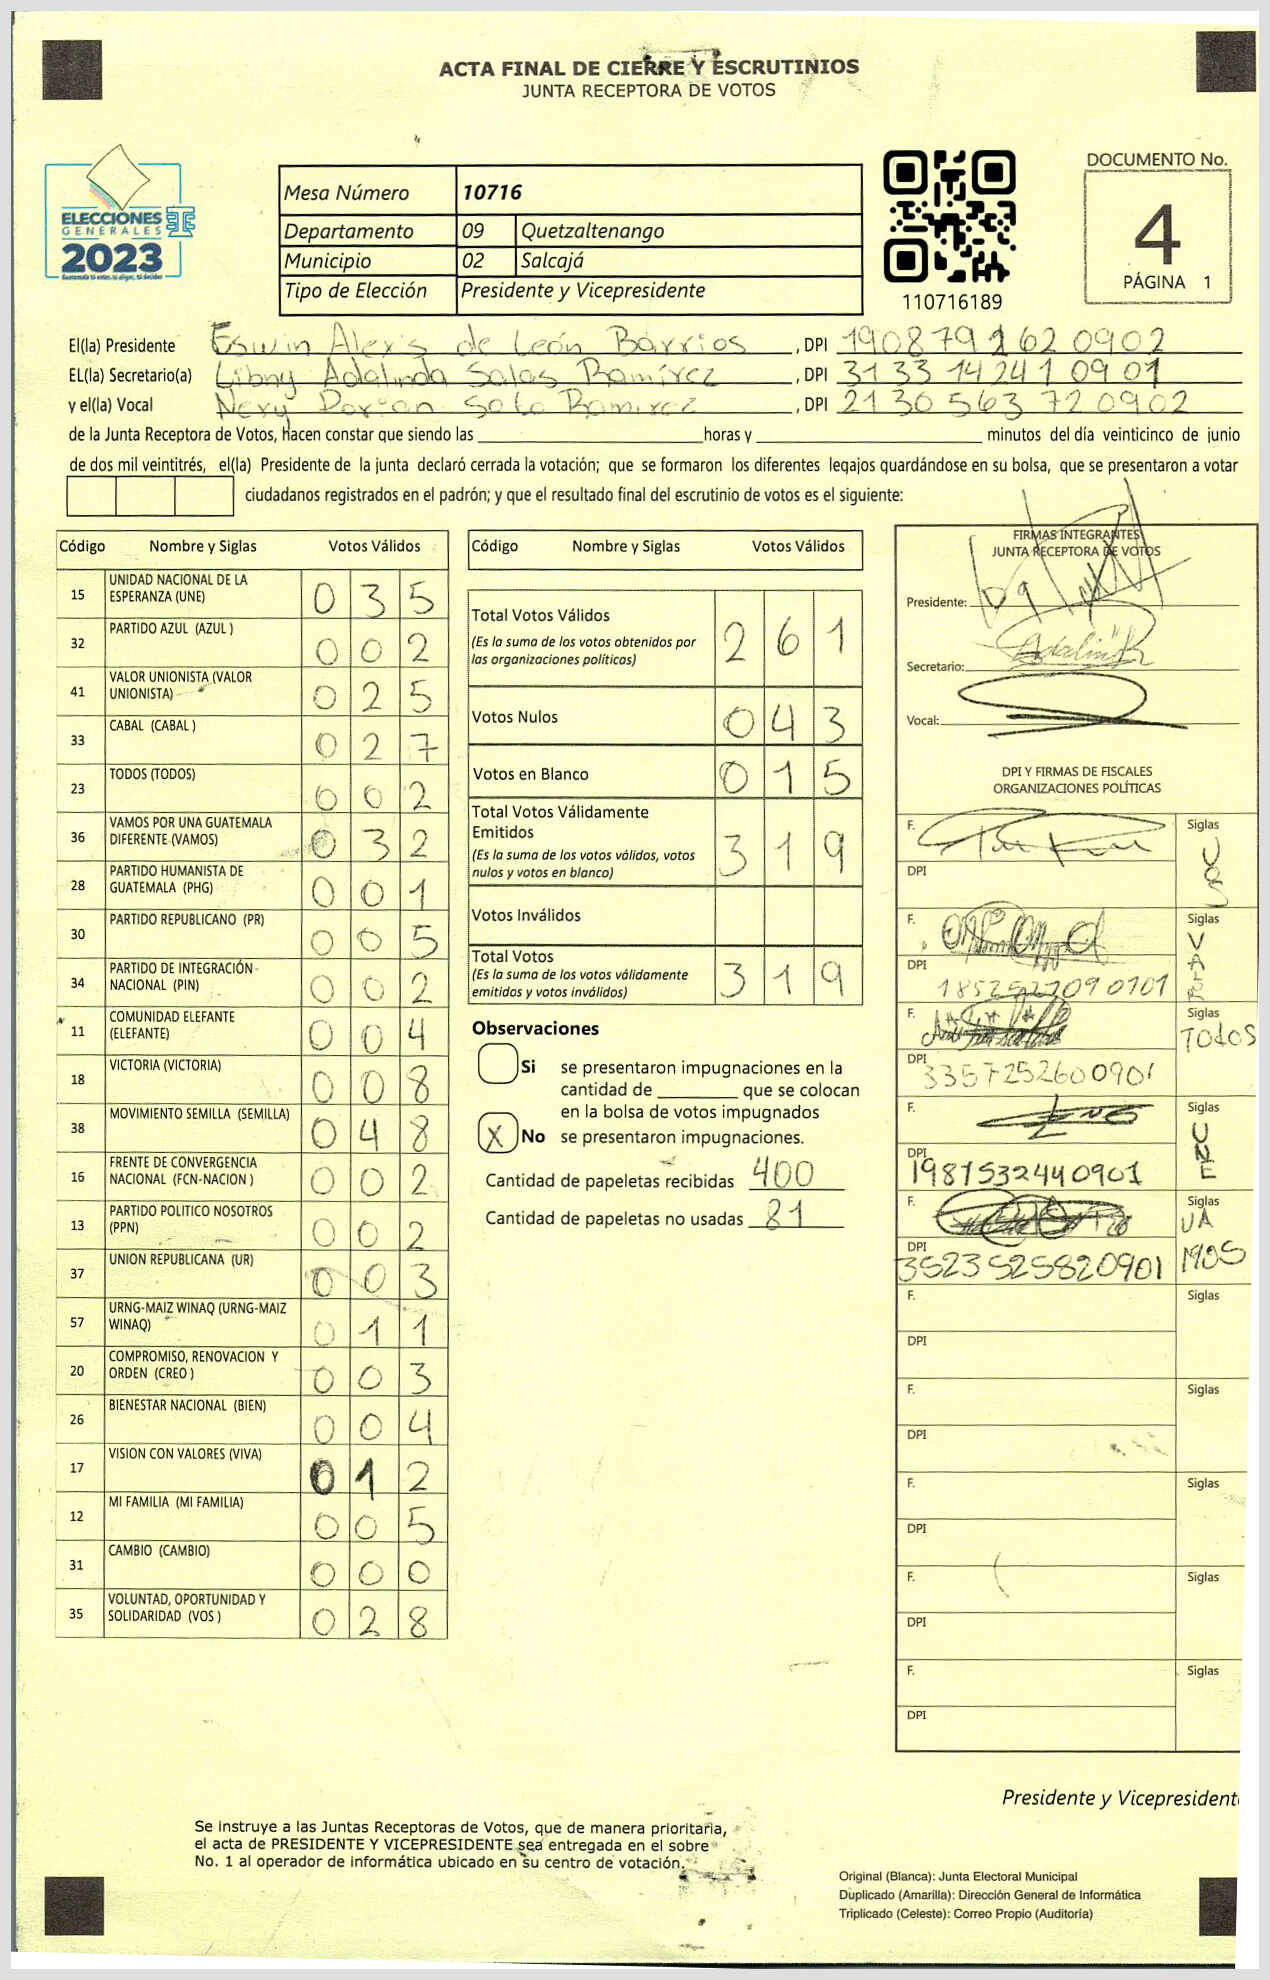 ACTA FINAL DE CIERRE Y ESCRUTINIOS
JUNTA RECEPTORA DE VOTOS
ELECCIONES
GENERALES
2023
Mesa Número 10716
Departamento 09 Quetzaltenango
Municipio 02 Salcajá
Tipo de Elección Presidente y Vicepresidente
110716189
DOCUMENTO No.
4
PÁGINA 1
El(la) Presidente Eswin Alexis de León Barrios, DPI 1908791620902
EL(la) Secretario(a) Libny Adalinda Salas Ramírez, DPI 3133142410901
y el(la) Vocal Nery Dorian Soto Ramirez, DPI 2130563720902
de la Junta Receptora de Votos, Hacen constar que siendo las horas y minutos del día veinticinco de junio
de dos mil veintitrés, el(la) Presidente de la junta declaró cerrada la votación; que se formaron los diferentes legajos guardándose en su bolsa, que se presentaron a votar
ciudadanos registrados en el padrón; y que el resultado final del escrutinio de votos es el siguiente:
Código Nombre y Siglas Votos Válidos
15 UNIDAD NACIONAL DE LA ESPERANZA (UNE) 0 3 5
32 PARTIDO AZUL (AZUL ) 0 0 2
41 VALOR UNIONISTA (VALOR UNIONISTA) 0 2 5
33 CABAL (CABAL ) 0 2 7
23 TODOS (TODOS) 0 0 2
36 VAMOS POR UNA GUATEMALA DIFERENTE (VAMOS) 0 3 2
28 PARTIDO HUMANISTA DE GUATEMALA (PHG) 0 0 1
30 PARTIDO REPUBLICANO (PR) 0 0 5
34 PARTIDO DE INTEGRACIÓN NACIONAL (PIN) 0 0 2
11 COMUNIDAD ELEFANTE (ELEFANTE) 0 0 4
18 VICTORIA (VICTORIA) 0 0 8
38 MOVIMIENTO SEMILLA (SEMILLA) 0 4 8
16 FRENTE DE CONVERGENCIA NACIONAL (FCN-NACION ) 0 0 2
13 PARTIDO POLITICO NOSOTROS (PPN) 0 0 2
37 UNION REPUBLICANA (UR) 0 0 3
57 URNG-MAIZ WINAQ (URNG-MAIZ WINAQ) 0 1 1
20 COMPROMISO, RENOVACION Y ORDEN (CREO ) 0 0 3
26 BIENESTAR NACIONAL (BIEN) 0 0 4
17 VISION CON VALORES (VIVA) 0 1 2
12 MI FAMILIA (MI FAMILIA) 0 0 5
31 CAMBIO (CAMBIO) 0 0 0
35 VOLUNTAD, OPORTUNIDAD Y SOLIDARIDAD (VOS ) 0 2 8
Código Nombre y Siglas Votos Válidos
Total Votos Válidos 2 6 1
(Es la suma de los votos obtenidos por
las organizaciones políticas)
Votos Nulos 0 4 3
Votos en Blanco 0 1 5
Total Votos Válidamente
Emitidos 3 1 9
(Es la suma de los votos válidos, votos
nulos y votos en blanco)
Votos Inválidos
Total Votos 3 1 9
(Es la suma de los votos válidamente
emitidos y votos inválidos)
Observaciones
Si se presentaron impugnaciones en la
cantidad de que se colocan
en la bolsa de votos impugnados
X No se presentaron impugnaciones.
Cantidad de papeletas recibidas 400
Cantidad de papeletas no usadas 81
FIRMAS INTEGRANTES
JUNTA RECEPTORA DE VOTOS
Presidente:
Secretario:
Vocal:
DPI Y FIRMAS DE FISCALES
ORGANIZACIONES POLÍTICAS
F. Siglas VOS
DPI
F. Siglas VALOR
DPI
F. Siglas TODOS
DPI 3357252600901
F. Siglas UNE
DPI 1981532440901
F. Siglas VAMOS
DPI 3523525820901
F. Siglas
DPI
F. Siglas
DPI
F. Siglas
DPI
F. Siglas
DPI
F. Siglas
DPI
Presidente y Vicepresident
Se instruye a las Juntas Receptoras de Votos, que de manera prioritaria,
el acta de PRESIDENTE Y VICEPRESIDENTE sea entregada en el sobre
No. 1 al operador de informática ubicado en su centro de votación.
Original (Blanca): Junta Electoral Municipal
Duplicado (Amarilla): Dirección General de Informática
Triplicado (Celeste): Correo Propio (Auditoría)